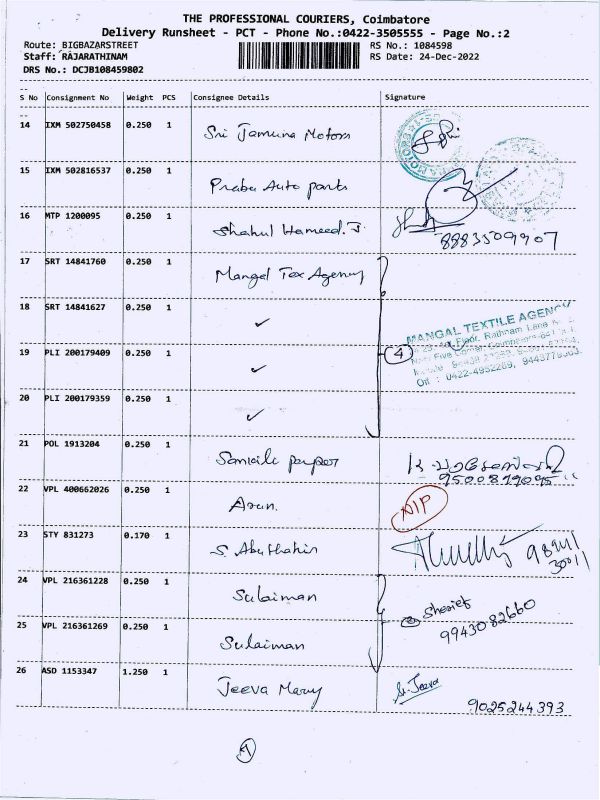 THE PROFESSIONAL COURIERS, Coimbatore
Delivery Runsheet - PCT - Phone No.:0422-3505555 - Page No.:2
Route: BIGBAZARSTREET
RS No.: 1084598
Staff: RAJARATHINAM
RS Date: 24-Dec-2022
DRS No.: DCJB108459802
S No Consignment No Weight PCS Consignee Details Signature
14 IXM 502750458 0.250 1 Sri Jamuna Motors
15 IXM 502816537 0.250 1 Prabu Auto parts
16 MTP 1200095 0.250 1 Shahul Hameed.J
8883509907
17 SRT 14841760 0.250 1 Mangal Tex Agency
18 SRT 14841627 0.250 1 ✓
MANGAL TEXTILE AGENCY
19 PLI 200179409 0.250 1 ✓ 4
Off : 0422-4952269,
20 PLI 200179359 0.250 1 ✓
21 POL 1913204 0.250 1 paper
22 VPL 400662026 0.250 1 Arun.
23 STY 831273 0.170 1 S. Abuthahir
24 VPL 216361228 0.250 1 Sulaiman
Sherief
9943082660
25 VPL 216361269 0.250 1 Sulaiman
26 ASD 1153347 1.250 1 Jeeva Mary
Jeeva
9025244393